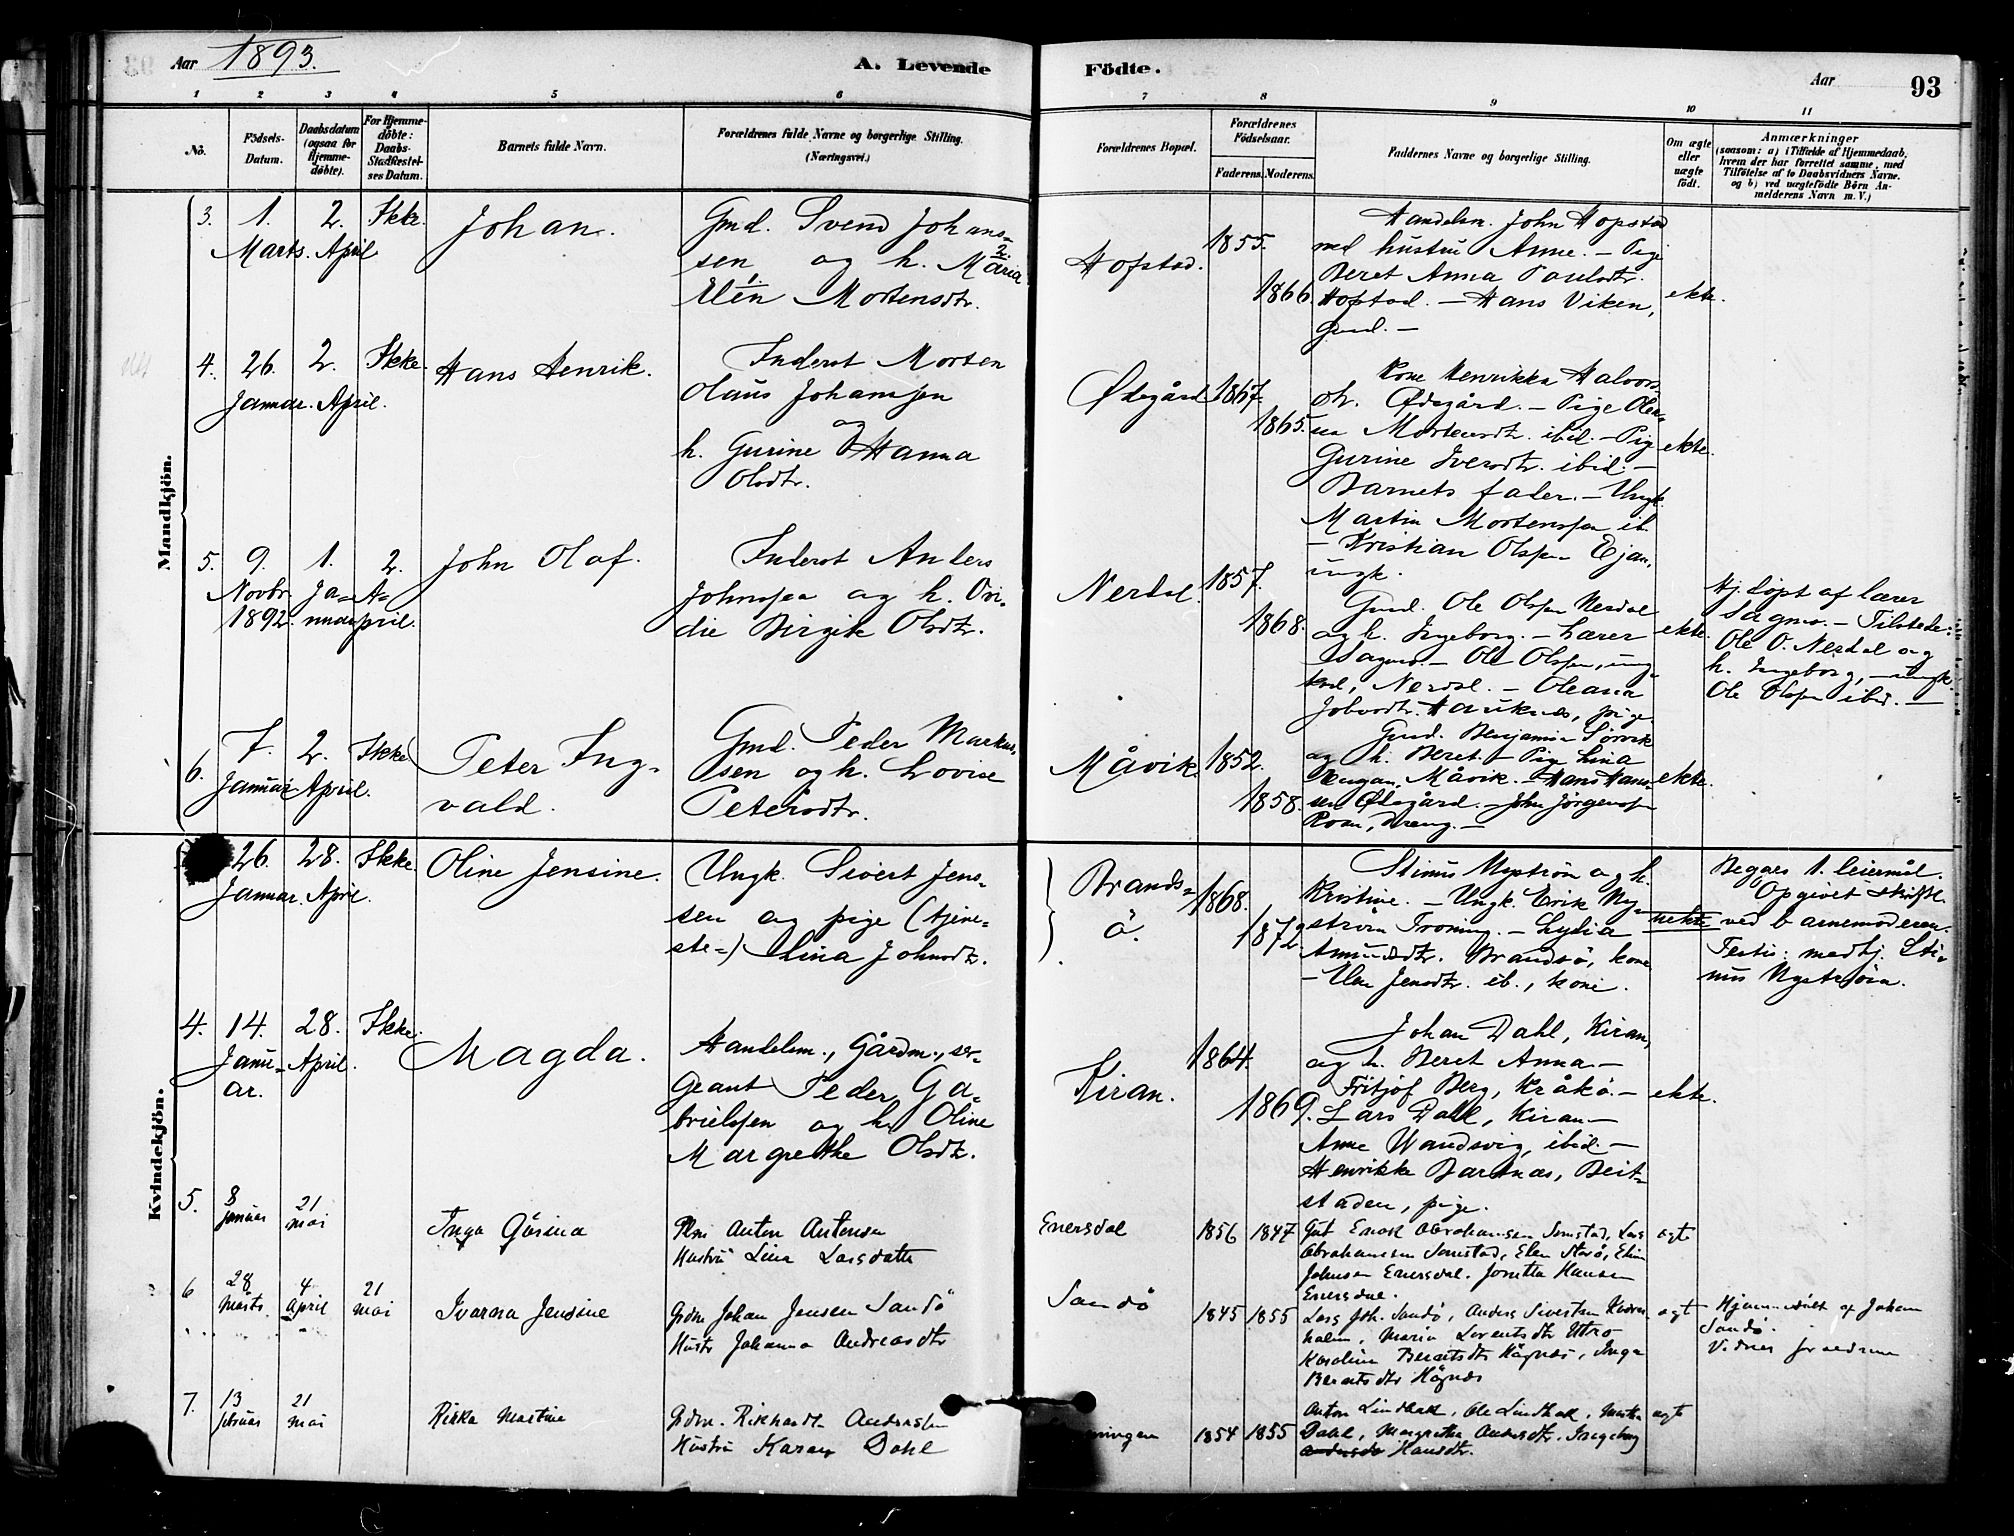 Aar 1893.
A. Levende Födte.
Aar 93
1 2 3 4 5 6 7 8 9 10 11
No.
Födsels-Datum.
Daabsdatum (ogsaa for Hjemme-døbte).
For Hjemme-døbte: Daabs-Stadfæstel-ses Datum.
Barnets fulde Navn.
Forældrenes fulde Navne og borgerlige Stilling. (Næringsvei.)
Forældrenes Bopæl.
Forældrenes Födselsaar.
Faderens. Moderens.
Faddernes Navne og borgerlige Stilling.
Om ægte eller uægte födt.
Anmærkninger
(saasom: a) i Tilfælde af Hjemmedaab,
hvem der har forrettet samme, med
Tilföielse af to Daabsvidners Navne.
og b) ved uægtefödte Börn An-
melderens Navn m. V.)
Mandkjön.
3. 1. Marts. 2. April Ikke. Johan.
Gmd. Svend Johan-
sen og h. Maria
Elén Mortensdtr.
Hofstad. 1855. 1866.
Handelsm. John Hopstad
med hustru Anne. – Pige
Beret Anna Paulsdtr.
Hofstad. – Hans Viken,
Gmd. –
ekte.
4. 26. Januar. 2. April. Ikke. Hans Henrik.
Inderst Morten
Olaus Johansen
og
h. Gurine Hanna
Olsdtr.
Ødegård 1867. 1865.
Kone Henrikka Halvors-
dtr. Ødegård. – Pige Ole-
na Mortensdtr. ibid. – Pige
Gurine Iversdtr. ibid. –
Barnets fader. – Ungk.
Martin Mortenssen ib.
– Kristian Olssen Ejan,
ungk.
ekte.
5. 9. Novbr. 1892. 1. Januar 2. April. John Olaf.
Inderst Anders
Johnssen og h. Ovi-
die Birgite Olsdtr.
Nerdal. 1857. 1868.
Gmd. Ole Olssen Nerdal
og h. Ingeborg. – Lærer
Sagmo. – Ole Olssen, ung-
karl, Nerdal. – Oleana
Johnsdtr. Hauknes, pige
ekte.
Hj.døpt af lærer
Sagmo. – Tilstede:
Ole O. Nerdal og
h. Ingeborg, – ungk.
Ole Olssen ibid. –
6. 7. Januar 2. April. Ikke Peter Ing-
vald.
Gmd. Peder Markus-
sen og h. Lovise
Petersdtr.
Måvik. 1852. 1858.
Gmd. Benjamin Sørvik
og h. Beret. – Pige Lina
Måvik. – Hans Hans-
sen Ødegård. – John Jørgenssen
Roan, dreng. –
ekte.
Kvindekjön.
26. Januar. 28. April. Ikke Oline Jensine.
Ungk. Sivert Jens-
sen og pige (tjene-
ste-) Lina Johnsdtr.
Brands-
ö. 1868. 1872.
Stinus Nystrøn og h.
Kristine. – Ungk. Erik Ny-
strøn Froning. – Lydia
Amundsdtr. Brandsö, kone
– Elen Jensdtr. ib., kone.
uekte
Begges 1. leiermål.
Opgivet skriftl.
ved barnemoderen.
Testis: medhj. Sti-
nus Nystrøn.
4. 14. Janu-
ar. 28. April. Ikke. Magda.
Handelsm., Gårdm., ser-
geant Peder Ga-
brielssen og h. Oline
Margrethe Olsdtr.
Kiran. 1864. 1869.
Johan Dahl, Kiran,
og h. Beret Anna –
Fritjof Berg, Kråkö. –
Lars Dahl, Kiran –
Anne Wandsvig, ibid. –
Henrikke Bartnæs, Beit-
staden, pige.
ekte.
5. 8 Januar 21 Mai Inga Gjörina
Anton Antonsen
Hustru Lina Larsdatter
Enersdal 1856 1847
Gut Enok Abrahamsen Sumstad, Lars
Abrahamsen Sumstad, Elen Storö, Elin
Johnsen Enersdal. Jonetta Hansen
Enersdal.
ægte
6 28 Marts 4 April 21 Mai Ivarna Jensine
Grdm Johan Jensen Sandö
Hustr Johanna Andreasdtr
Sandö 1845 1855
Lars Joh. Sandö, Anders Sivertsen
holm, Maria Lorentsdtr Uttro
Karoline Berntsdtr Hågnes, Inga
Berntsdtr Hågnes
ægt
Hjemmedöbt af Johan
Sandö.
Vidner forældrene
7. 13 februar 21 Mai Rikka Martine
Grdm. Rikhardt Andersen
Hustru Karen Dahl
1854 1855
Anton Lindbak, Ole Lindbak, Martha
Dahl, Margretha Andersdtr, Ingeborg
Hansdtr.
ægte